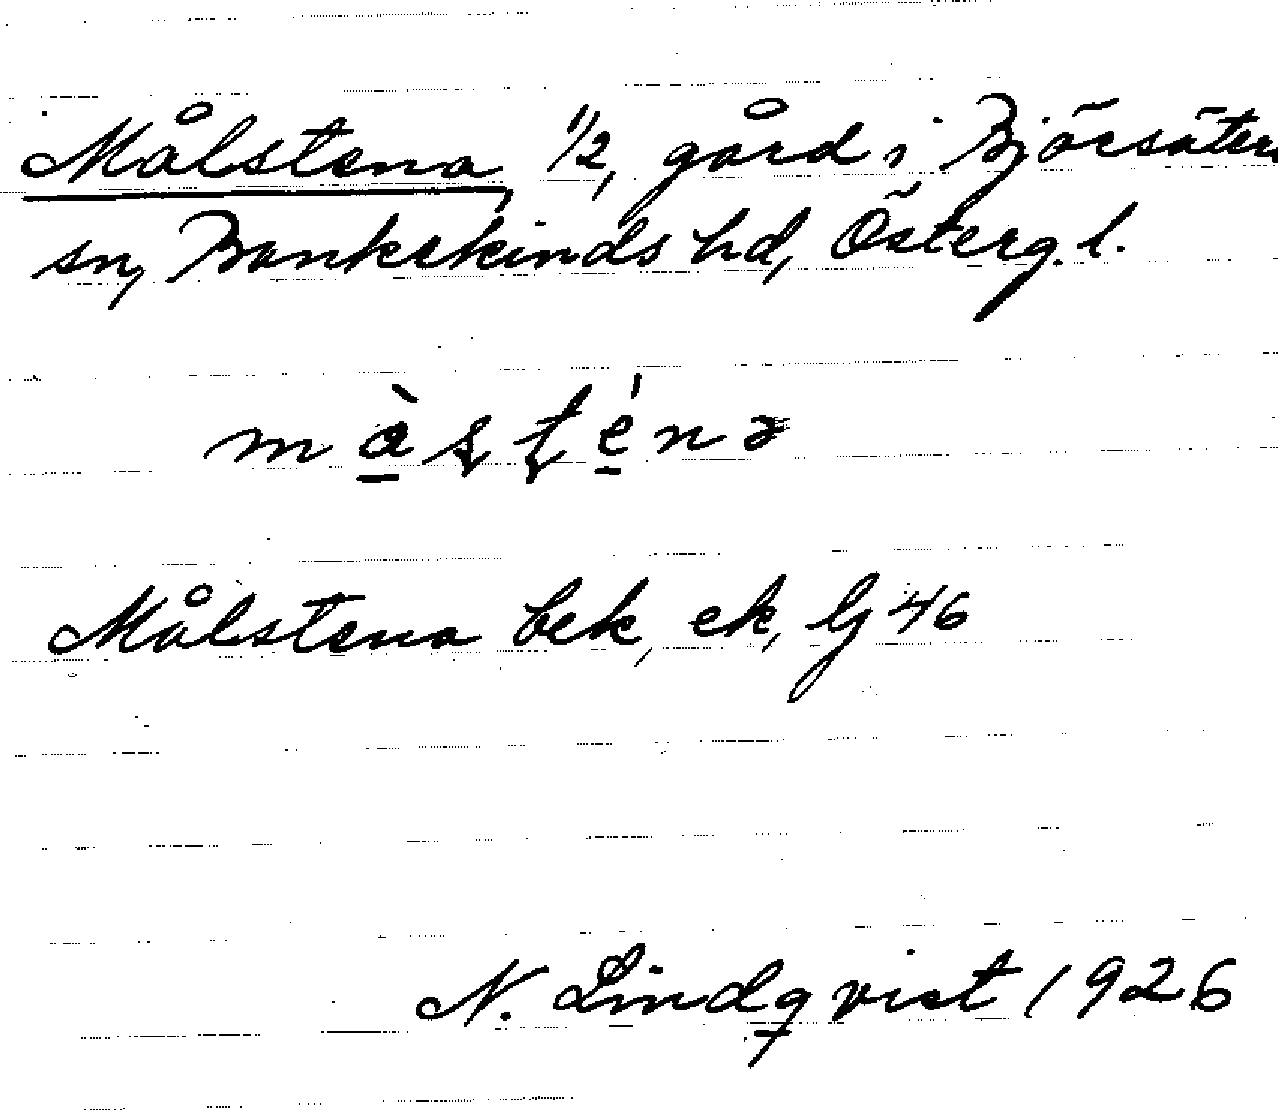 Målstena, 1/2, gård i Björsäters
sn, Bankekinds hd, Österg. l.
Målstena bek, ek, lj 46
N. Lindqvist 1926